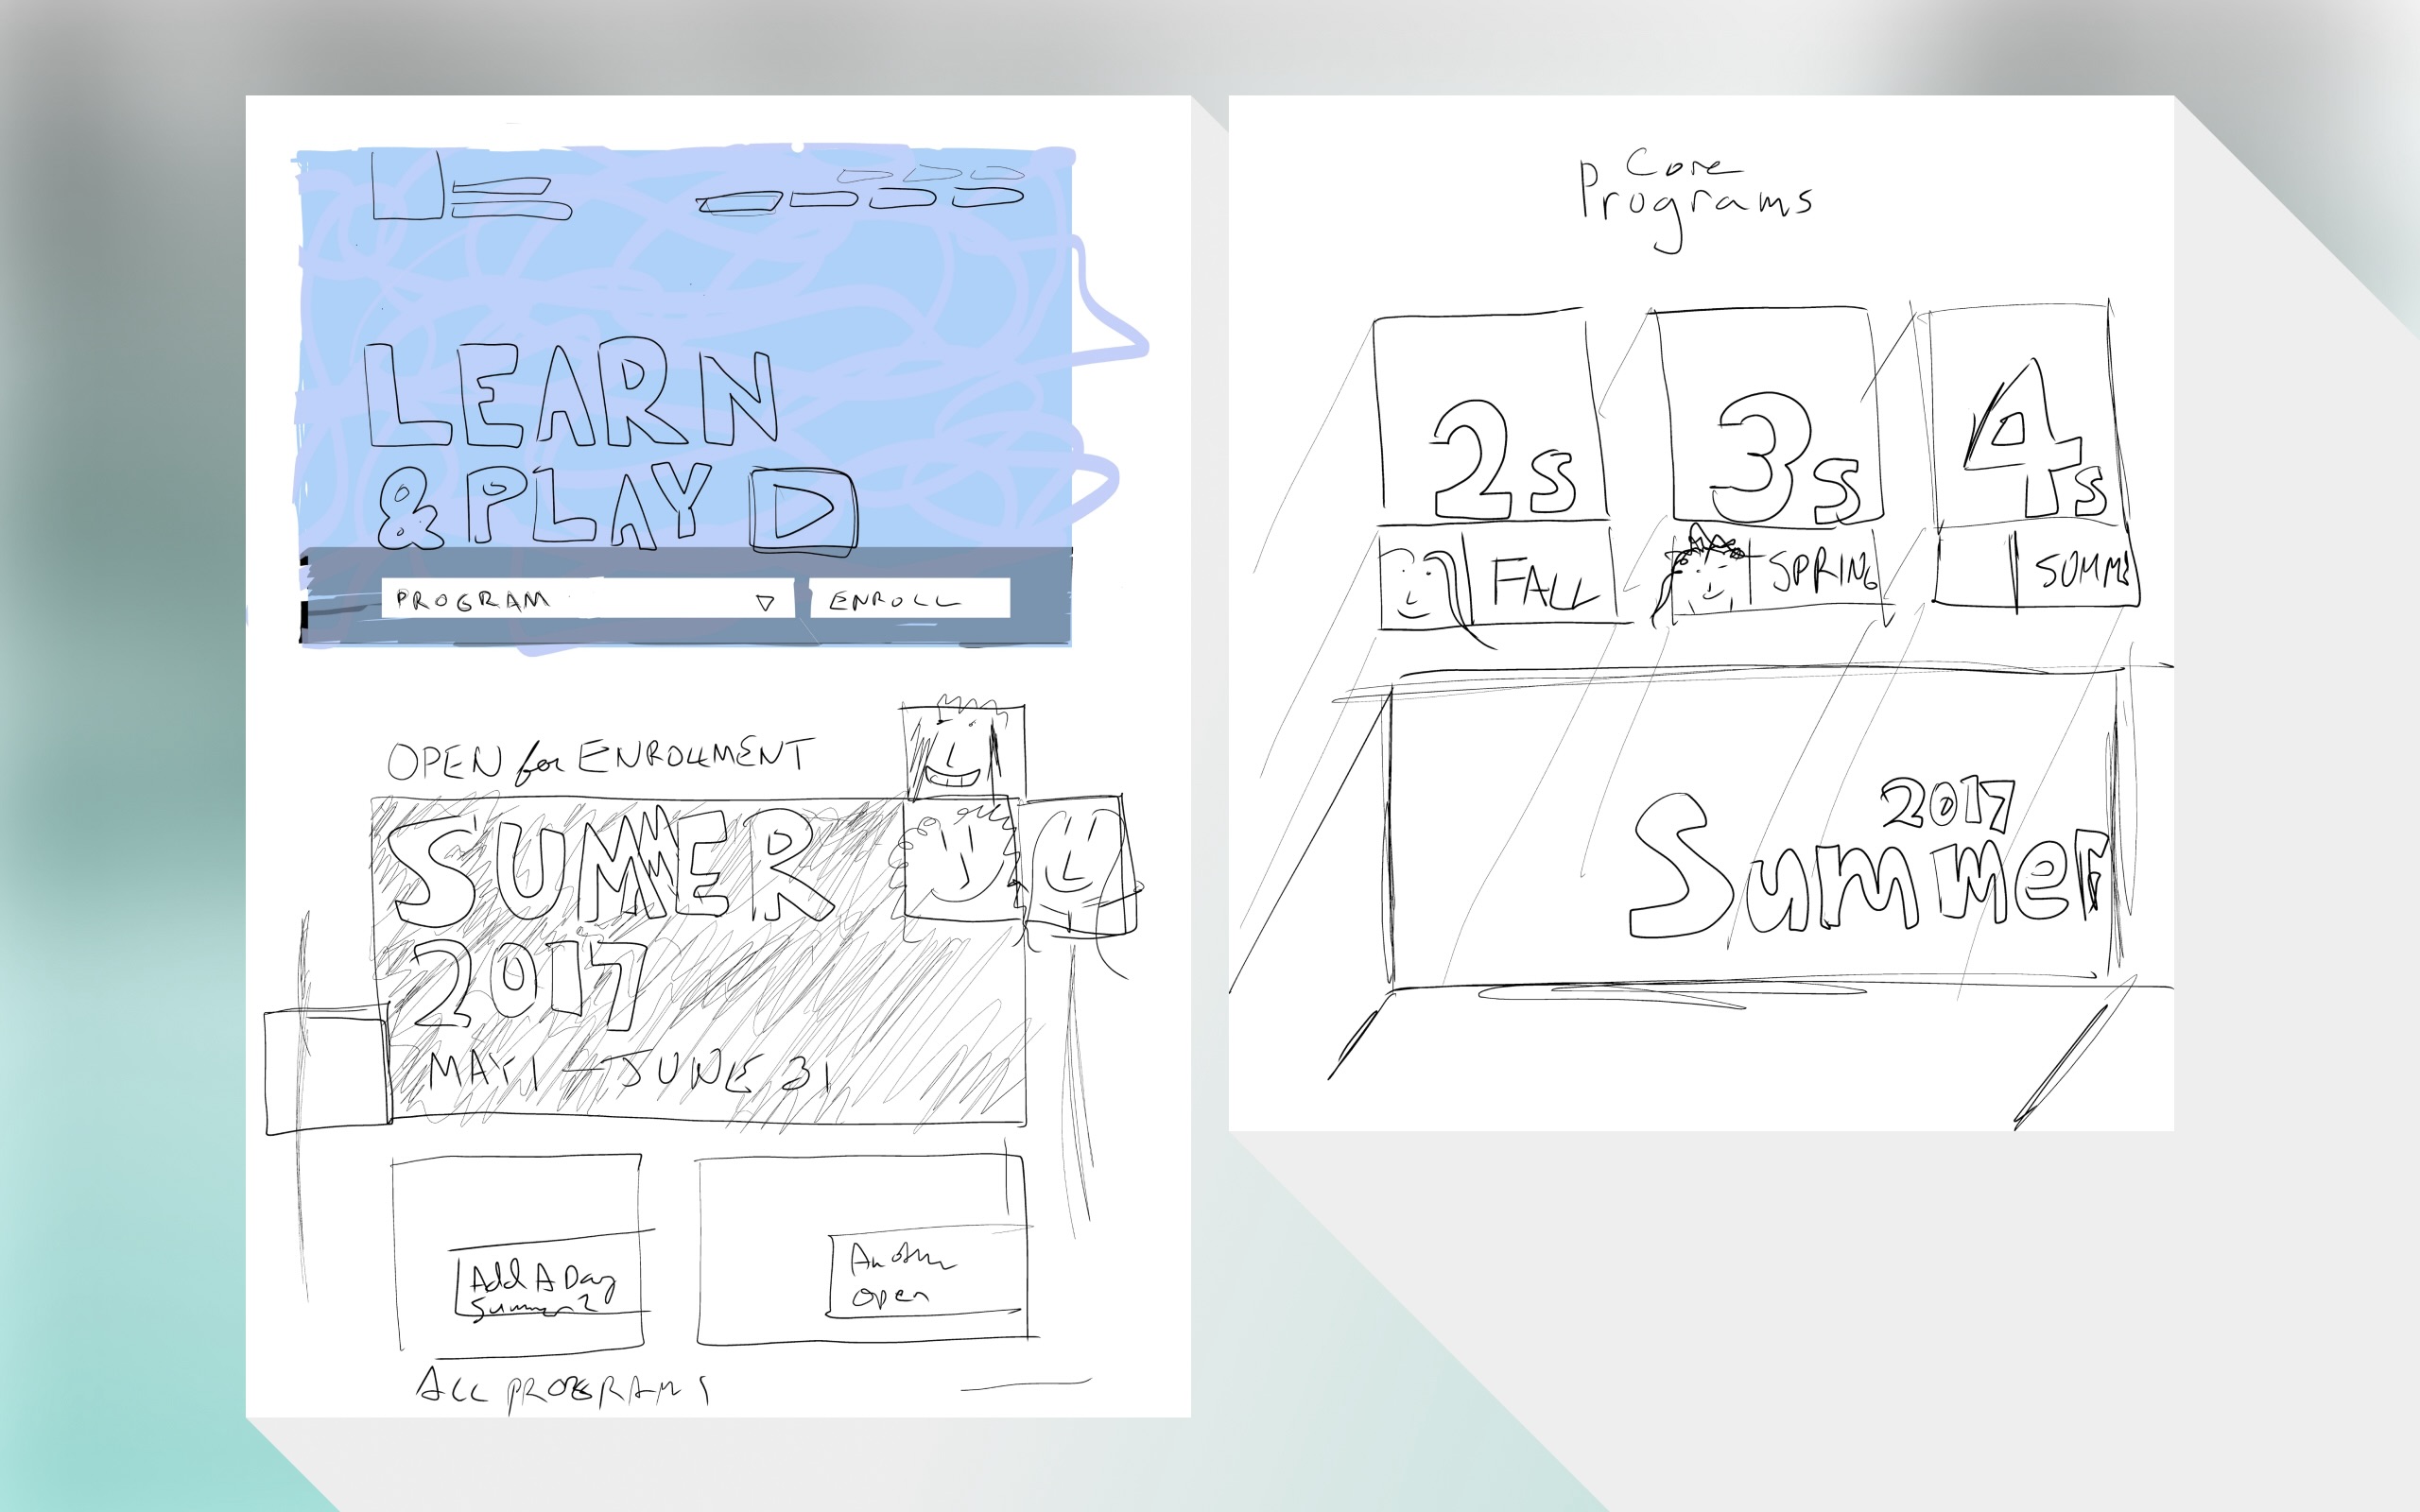 LEARN
& PLAY
PROGRAM ENROLL
OPEN for ENROLLMENT
SUMMER
2017
MAY 1 - JUNE 31
Add A Day
Summer
Another
open
ALL PROGRAMS
Core
Programs
2s 3s 4s
FALL SPRING SUMME
2017
Summer